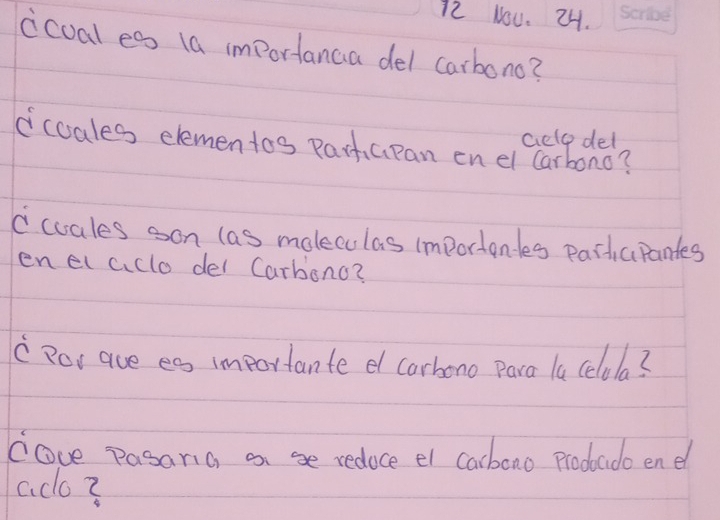 12 Nov. 24. Scribe
¿cual es la importancia del carbono?
¿cuales elementos participan en el ciclo del carbono?
¿cuales son las moleculas importantes participantes
en el ciclo del Carbono?
¿Por que es importante el carbono para la celula?
¿Que pasaria si se reduce el carbono producido en el
ciclo?